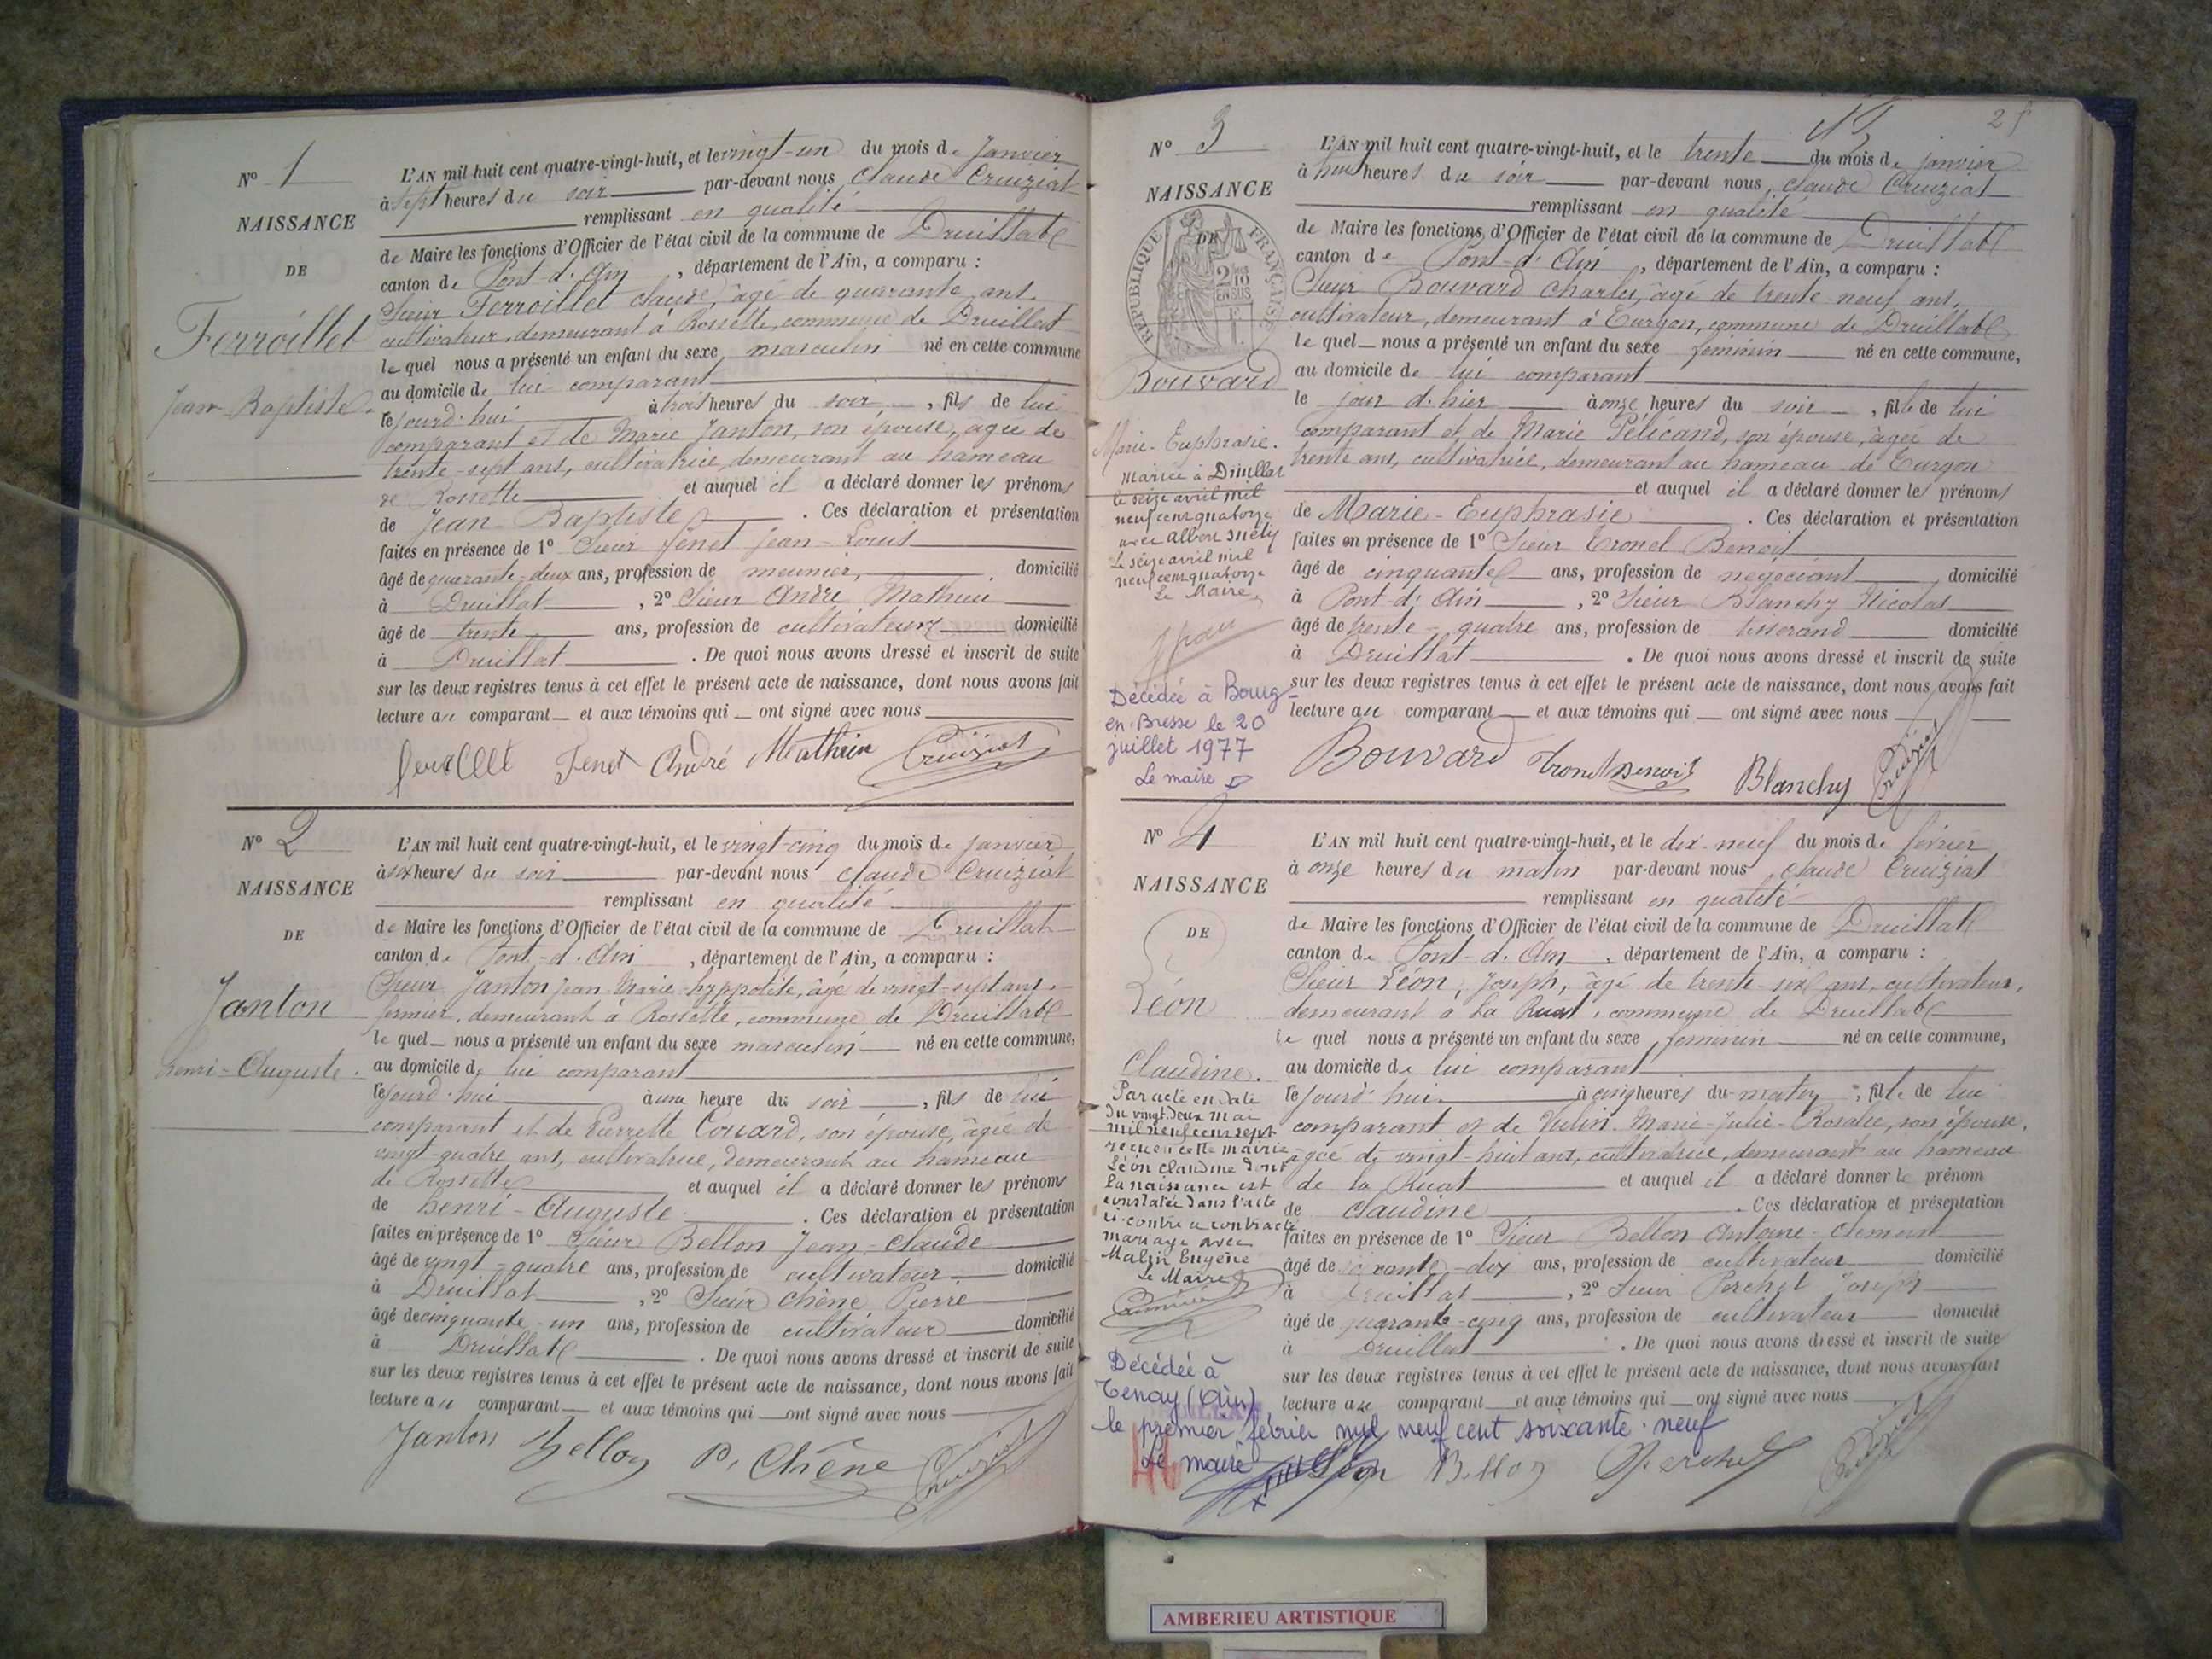 N° 1
NAISSANCE
DE
Ferroillet
Jean-Baptiste.
L'AN mil huit cent quatre-vingt-huit, et le vingt-un du mois de Janvier
à sept heures du soir par-devant nous Claude Cruiziat
remplissant en qualité
de Maire les fonctions d'Officier de l'état civil de la commune de Druillat
canton de Pont-d'Ain, département de l'Ain, a comparu :
Sieur Ferroillet Claude, âgé de quarante ans,
cultivateur, demeurant à Rossette, commune de Druillat
lequel nous a présenté un enfant du sexe masculin né en cette commune
au domicile de lui comparant
le jourd'hui à trois heures du soir, fils de lui
comparant et de Marie Janton, son épouse, âgée de
trente-sept ans, cultivatrice, demeurant au hameau
de Rossette et auquel il a déclaré donner les prénoms
de Jean Baptiste. Ces déclaration et présentation
faites en présence de 1° Sieur Jenet Jean-Louis
âgé de quarante-deux ans, profession de meunier, domicilié
à Druillat, 2° Sieur André Mathieu
âgé de trente ans, profession de cultivateur domicilié
à Druillat. De quoi nous avons dressé et inscrit de suite
sur les deux registres tenus à cet effet le présent acte de naissance, dont nous avons fait
lecture au comparant et aux témoins qui ont signé avec nous
Jenet André Mathieu Cruiziat
N° 2
NAISSANCE
DE
Janton
henri-Auguste.
L'AN mil huit cent quatre-vingt-huit, et le vingt-cinq du mois de Janvier
à six heures du soir par-devant nous Claude Cruiziat
remplissant en qualité
de Maire les fonctions d'Officier de l'état civil de la commune de Druillat
canton de Pont-d'Ain, département de l'Ain, a comparu :
Sieur Janton Jean-Marie-hyppolite, âgé de vingt-sept ans,
fermier, demeurant à Rossette, commune de Druillat
lequel nous a présenté un enfant du sexe masculin né en cette commune,
au domicile de lui comparant
le jourd'hui à une heure du soir, fils de lui
comparant et de Pierrette Couard, son épouse, âgée de
vingt-quatre ans, cultivatrice, demeurant au hameau
de Rossette et auquel il a déclaré donner les prénoms
de henri-Auguste. Ces déclaration et présentation
faites en présence de 1° Sieur Bellon Jean-Claude
âgé de vingt-quatre ans, profession de cultivateur domicilié
à Druillat, 2° Sieur Chêne Pierre
âgé de cinquante-un ans, profession de cultivateur domicilié
à Druillat. De quoi nous avons dressé et inscrit de suite
sur les deux registres tenus à cet effet le présent acte de naissance, dont nous avons fait
lecture au comparant et aux témoins qui ont signé avec nous
Janton Bellon P. Chêne Cruiziat
25
N° 3
NAISSANCE
DE
RÉPUBLIQUE FRANÇAISE
2/10 EN SUS
Bouvard
Marie-Euphrasie.
Mariée à Druillat
le seize avril mil
neuf cent quatorze
avec Albert Suély
Le seize avril mil
neuf cent quatorze
Le Maire,
Décédée à Bourg-
en-Bresse le 20
juillet 1977
Le maire
L'AN mil huit cent quatre-vingt-huit, et le trente du mois de janvier
à huit heures du soir par-devant nous, Claude Cruiziat
remplissant en qualité
de Maire les fonctions d'Officier de l'état civil de la commune de Druillat
canton de Pont-d'Ain, département de l'Ain, a comparu :
Sieur Bouvard Charles, âgé de trente neuf ans,
cultivateur, demeurant à Turgon, commune de Druillat
lequel nous a présenté un enfant du sexe féminin né en cette commune,
au domicile de lui comparant
le jour d'hier à onze heures du soir, fille de lui
comparant et de Marie Pélicand, son épouse, âgée de
trente ans, cultivatrice, demeurant au hameau de Turgon
et auquel il a déclaré donner les prénoms
de Marie-Euphrasie. Ces déclaration et présentation
faites en présence de 1° Sieur Tronel Benoit
âgé de cinquante ans, profession de négociant domicilié
à Pont-d'Ain, 2° Sieur Blanchy Nicolas
âgé de trente-quatre ans, profession de tisserand domicilié
à Druillat. De quoi nous avons dressé et inscrit de suite
sur les deux registres tenus à cet effet le présent acte de naissance, dont nous avons fait
lecture au comparant et aux témoins qui ont signé avec nous
Bouvard Tronel Benoit Blanchy Cruiziat
N° 4
NAISSANCE
DE
Léon
Claudine.
Par acte en date
du vingt deux mai
mil neuf cent sept
reçu en cette mairie
Léon Claudine dont
la naissance est
constatée dans l'acte
ci-contre a contracté
mariage avec
Malin Eugène
Le Maire
Décédée à
Tenay (Ain)
le premier février mil neuf cent soixante-neuf
Le maire
L'AN mil huit cent quatre-vingt-huit, et le dix-neuf du mois de février
à onze heures du matin par-devant nous, Claude Cruiziat
remplissant en qualité
de Maire les fonctions d'Officier de l'état civil de la commune de Druillat
canton de Pont-d'Ain, département de l'Ain, a comparu :
Sieur Léon, Joseph, âgé de trente-six ans, cultivateur,
demeurant à la Ruat, commune de Druillat
lequel nous a présenté un enfant du sexe féminin né en cette commune,
au domicile de lui comparant
le jourd'hui à cinq heures du matin, fille de lui
comparant et de Vulin Marie-Julie-Rosalie, son épouse,
âgée de vingt-huit ans, cultivatrice, demeurant au hameau
de la Ruat et auquel il a déclaré donner le prénom
de Claudine. Ces déclaration et présentation
faites en présence de 1° Sieur Bellon Antoine-Clément
âgé de soixante-dix ans, profession de cultivateur domicilié
à Druillat, 2° Sieur Perchet Joseph
âgé de quarante-cinq ans, profession de cultivateur domicilié
à Druillat. De quoi nous avons dressé et inscrit de suite
sur les deux registres tenus à cet effet le présent acte de naissance, dont nous avons fait
lecture au comparant et aux témoins qui ont signé avec nous
Léon Bellon Perchet Cruiziat
AMBERIEU ARTISTIQUE